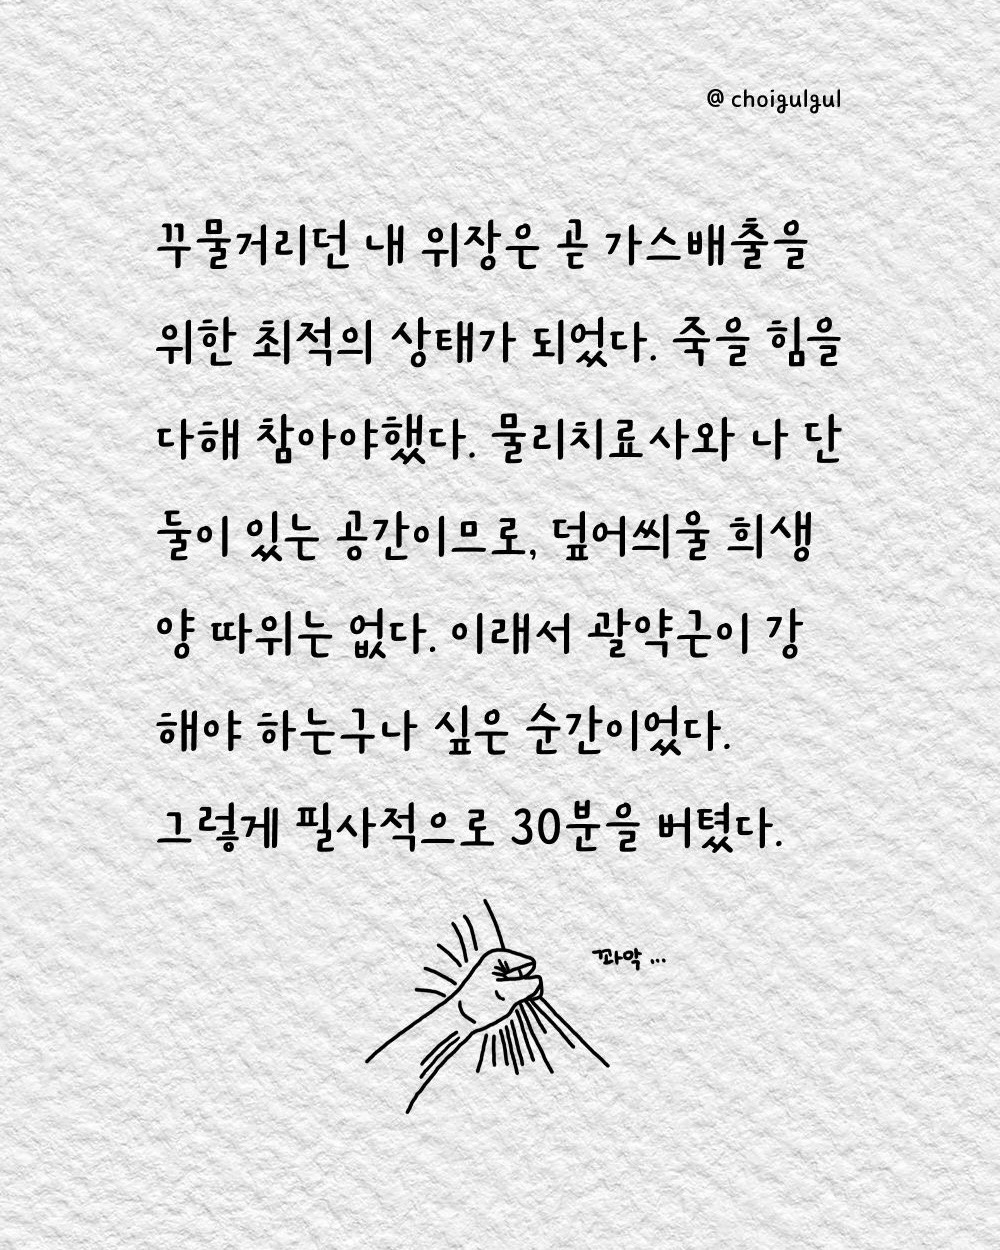 @ choigulgul
꾸물거리던 내 위장은 곧 가스배출을
위한 최적의 상태가 되었다. 죽을 힘을
다해 참아야했다. 물리치료사와 나 단
둘이 있는 공간이므로, 덮어씌울 희생
양 따위는 없다. 이래서 괄약근이 강
해야 하는구나 싶은 순간이었다.
그렇게 필사적으로 30분을 버텼다.
꽈악 ...